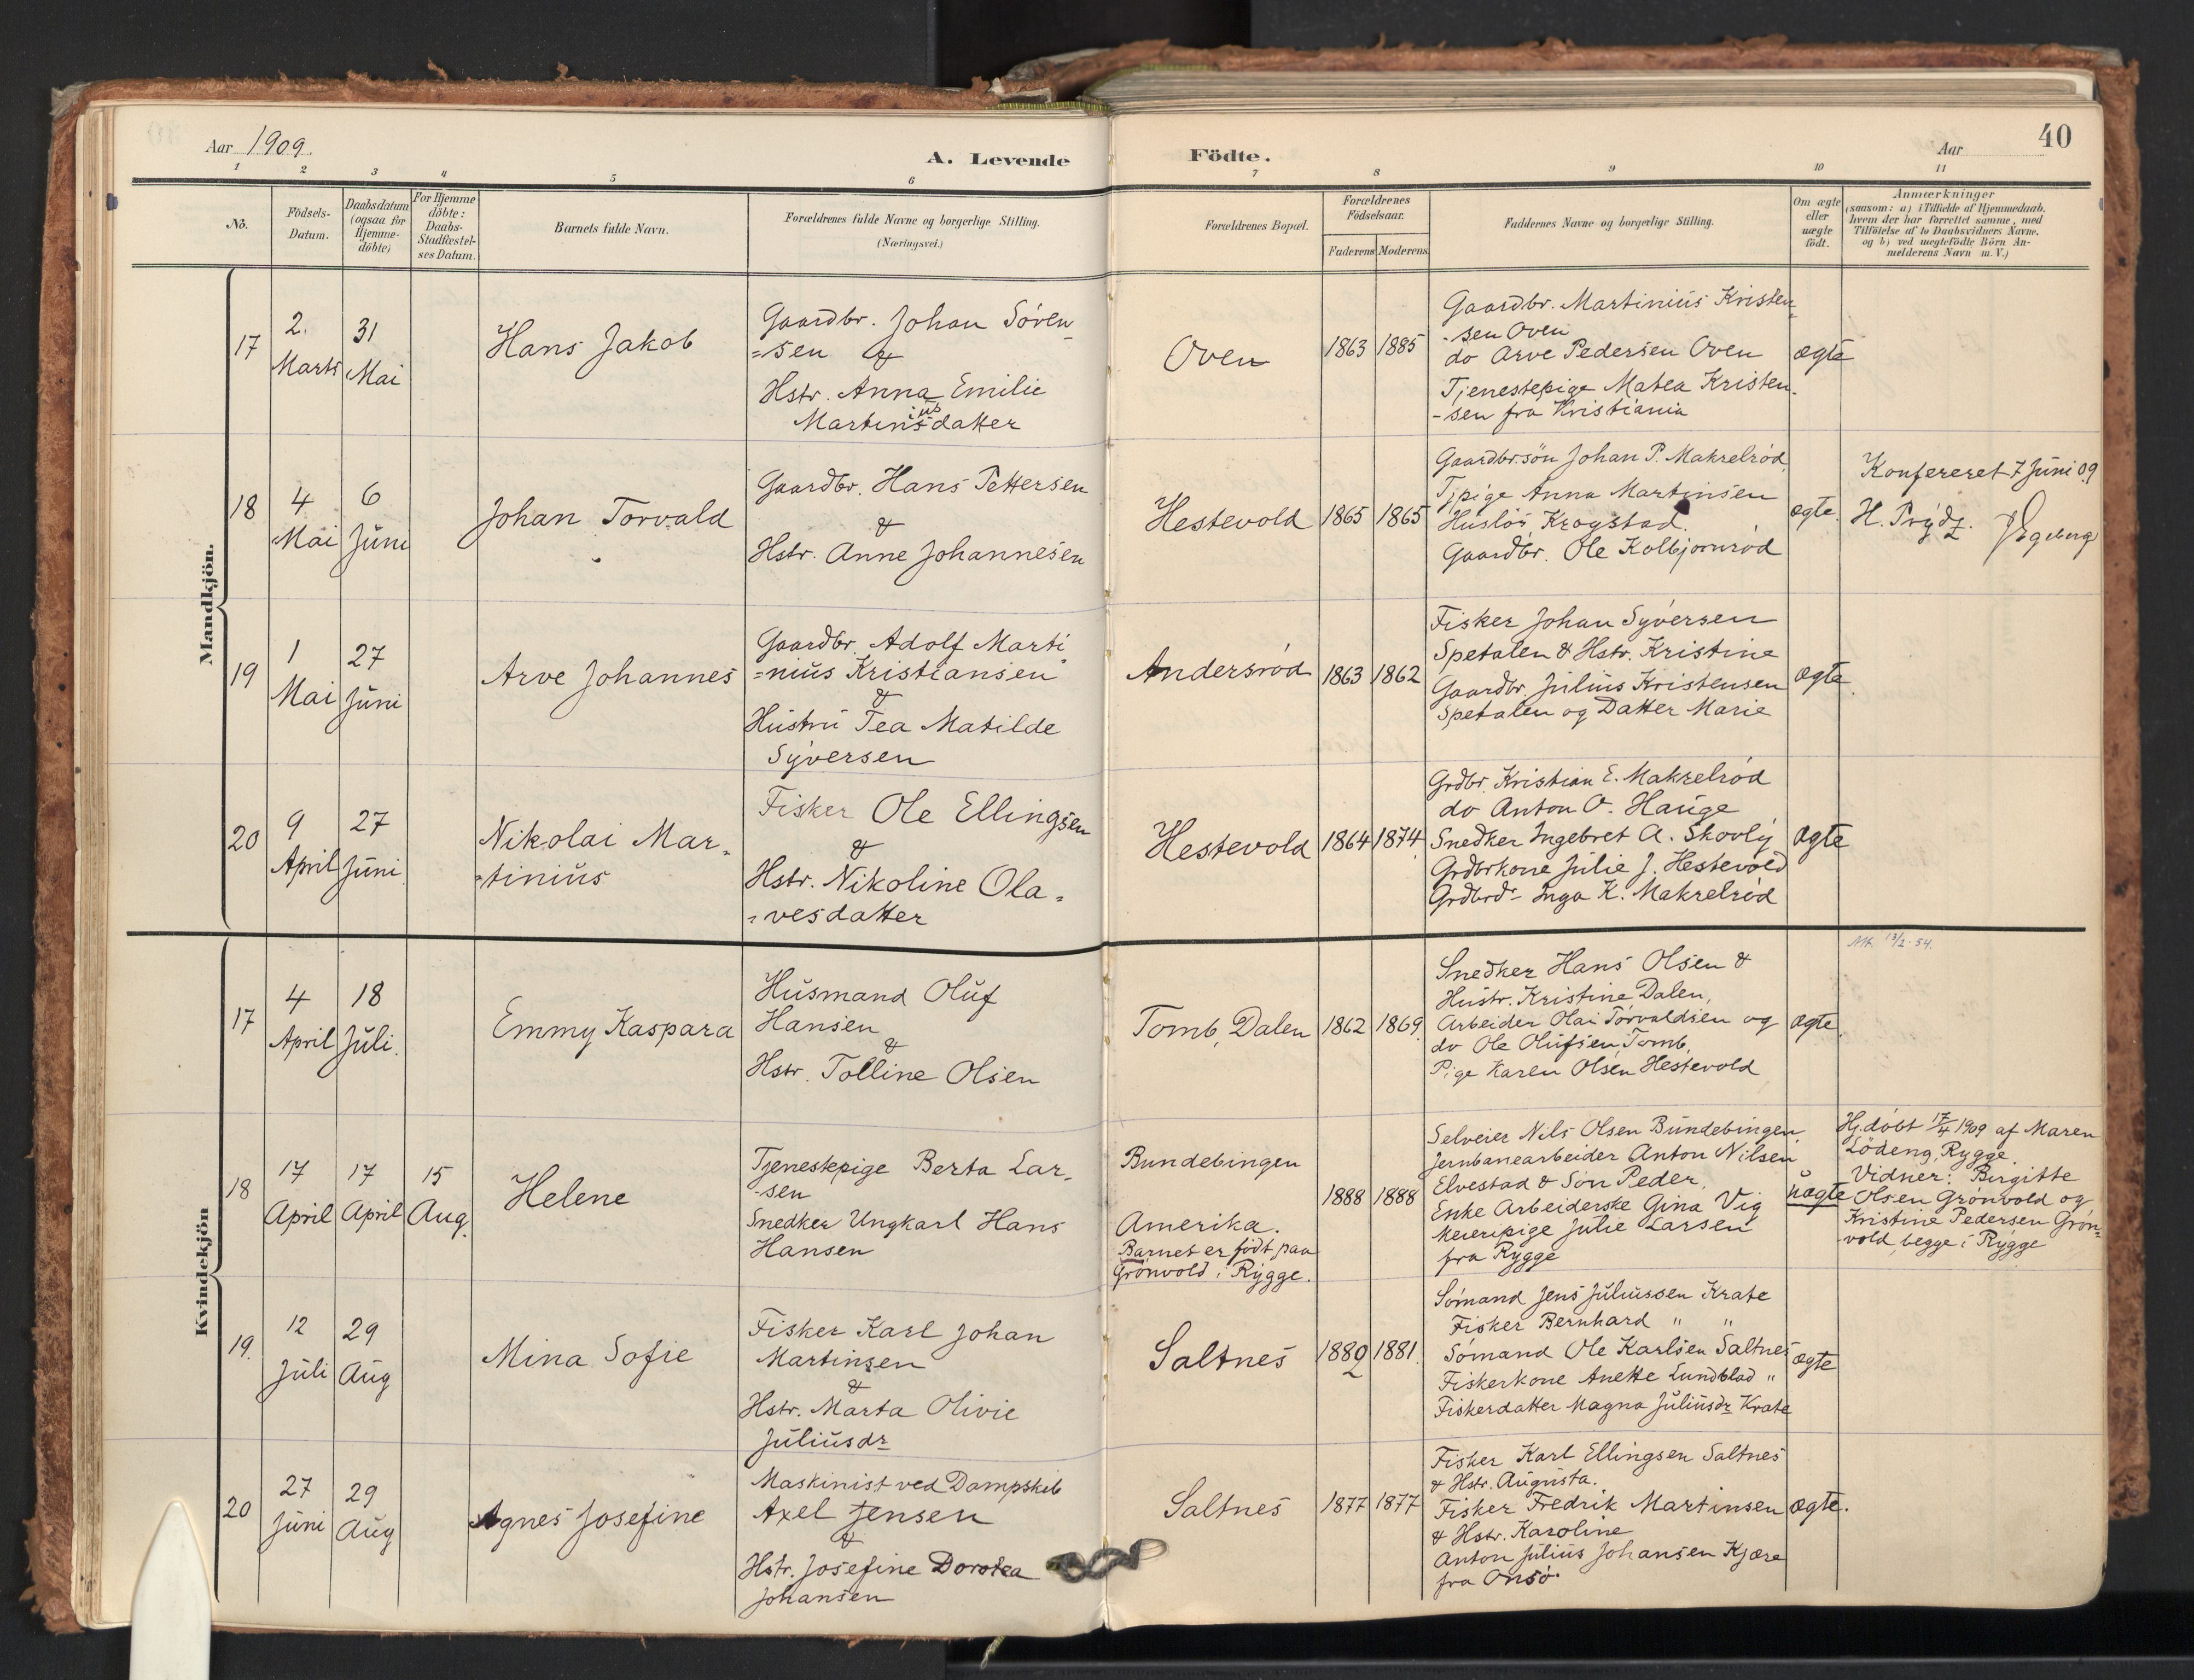 Aar 1909.
A. Levende Födte.
Aar
40
1 2 3 4 5 6 7 8 9 10 11
No.
Födsels-
Datum.
Daabsdatum
(ogsaa for
Hjemme-
döbte)
For Hjemme
döbte:
Daabs-
Stadfæstel-
ses Datum.
Barnets fulde Navn.
Forældrenes fulde Navne og borgerlige Stilling.
(Næringsvei.)
Forældrenes Bopæl.
Forældrenes
Födselsaar.
Faderens
Moderens
Faddernes Navne og borgerlige Stilling.
Om ægte
eller
uægte
födt.
Anmærkninger
(saasom: a) i Tilfælde af Hjemmedaab,
hvem der har forrettet samme, med
Tilföielse af to Daabsvidners Navne.
og b) ved uægtefödte Börn An-
melderens Navn m.V.)
Mandkjön.
17
2.
Marts
31
Mai
Hans Jakob
Gaardbr. Johan Sören-
=sen &
Hstr. Anna Emilie
Martiniusdatter
Oven
1863
1885
Gaardbr. Martinius Kristen-
-sen Oven
do Arve Pedersen Oven
Tjenestepige Matea Kristen-
-sen fra Kristiania
ægte
18
4
Mai
6
Juni
Johan Torvald
Gaardbr. Hans Pettersen
&
Hstr. Anne Johannesen
Hestevold
1865
1865
Gaardbr.sön Johan P. Makrelröd
Tjpige Anna Martinsen
Krogstad.
Gaardbr. Ole Kolbjørnröd
ægte.
Konfereret 7 Juni 09
H. Prydz. Egeberg
19
1
Mai
27
Juni
Arve Johannes
Gaardbr. Adolf Marti
=nius Kristiansen
&
Hustru Tea Matilde
Syversen
Andersröd
1863
1862
Fisker Johan Syversen
Spetalen & Hstr. Kristine
Gaardbr. Julius Kristensen
Spetalen og Datter Marie
ægte.
20
9
April
27
Juni
Nikolai Mar-
-tinius
Fisker Ole Ellingsen
&
Hstr. Nikoline Ola=
=vesdatter
Hestevold
1864
1874
Grdbr. Kristian E. Makrelröd
do Anton O. Hauge
Snedker Ingebret A. Skovly
Grdbrkone Julie J. Hestevold
Grdbrdr Inga K. Makrelröd
ægte
Kvindekjön
17
4
April
18
Juli.
Emmy Kaspara
Husmand Oluf
Hansen
&
Hstr. Tolline Olsen
Tomb, Dalen
1862
1869
Snedker Hans Olsen &
Hustr. Kristine Dalen,
Arbeider Olai Torvaldsen og
do Ole Olufsen Tomb,
Pige Karen Olsen Hestevold
ægte.
18
17
April
17
April
15
Aug.
Helene
Tjenestepige Berta Lar-
-sen
Snedker Ungkarl Hans
Hansen
Bundebingen
Amerika.
Barnet er født paa
Grönvold i Rygge.
1888
1888
Selveier Nils Olsen Bundebingen,
Jernbanearbeider Anton Nilsen
Elvestad & Sön Peder,
Enke Arbeiderske Gina Vig
Meieripige Julie Larsen
fra Rygge
uægte
Hj.döbt 17/4 1909 af Maren
Lödeng, Rygge
Vidner: Birgitte
Olsen Grönvold og
Kristine Pedersen Grön-
-vold, begge i Rygge
19.
12
Juli
29
Aug
Mina Sofie
Fisker Karl Johan
Martinsen
&
Hstr. Marta Olivie
Juliusdr
Saltnes
1882
1881
Sömand Jens Juliussen Krate
Fisker Bernhard " "
Sömand Ole Karlsen Saltnes
Fiskerkone Anette Lundblad "
Fiskerdatter Magna Juliusdr Krate
ægte
20
27
Juni
29
Aug
Agnes Josefine
Maskinist ved Dampskib
Axel Jensen
&
Hstr. Josefine Dorotea
Johansen
Saltnes
1877
1877
Fisker Karl Ellingsen Saltnes
& Hstr. Augusta.
Fisker Fredrik Martinsen
& Hstr. Karoline
Anton Julius Johansen Kjære
fra Onsö.
ægte.